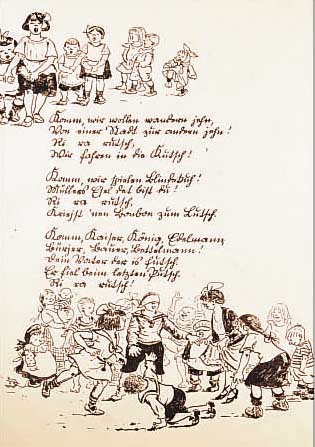 Komm, wir wollen wandern jehn,
Von einer Stadt zur andern jehn!
Ri ra rutsch,
Wir fahren in die Kutsch!
Komm, wir spielen Blindekuh!
Müllers Esel det bist du!
Ri ra rutsch,
Kriejst 'nen Bonbon zum Lutsch.
Komm, Kaiser, König, Edelmann,
Bürjer, Bauer, Bettelmann!
Dein Vater der is futsch.
Er fiel beim letzten Putsch.
Ri ra rutsch!